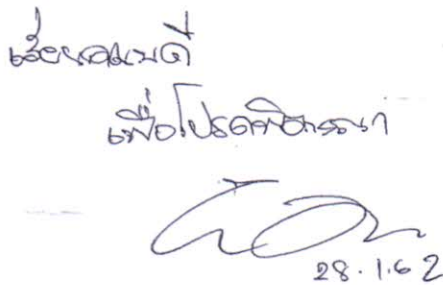 เรียนคณบดี
เพื่อโปรดพิจารณา
28.1.62